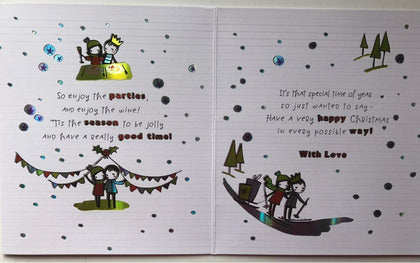 So enjoy the parties
and enjoy the wine!
'Tis the season to be jolly
and have a really good time!
It's that special time of year
so just wanted to say -
Have a very happy Christmas
in every possible way!
With Love